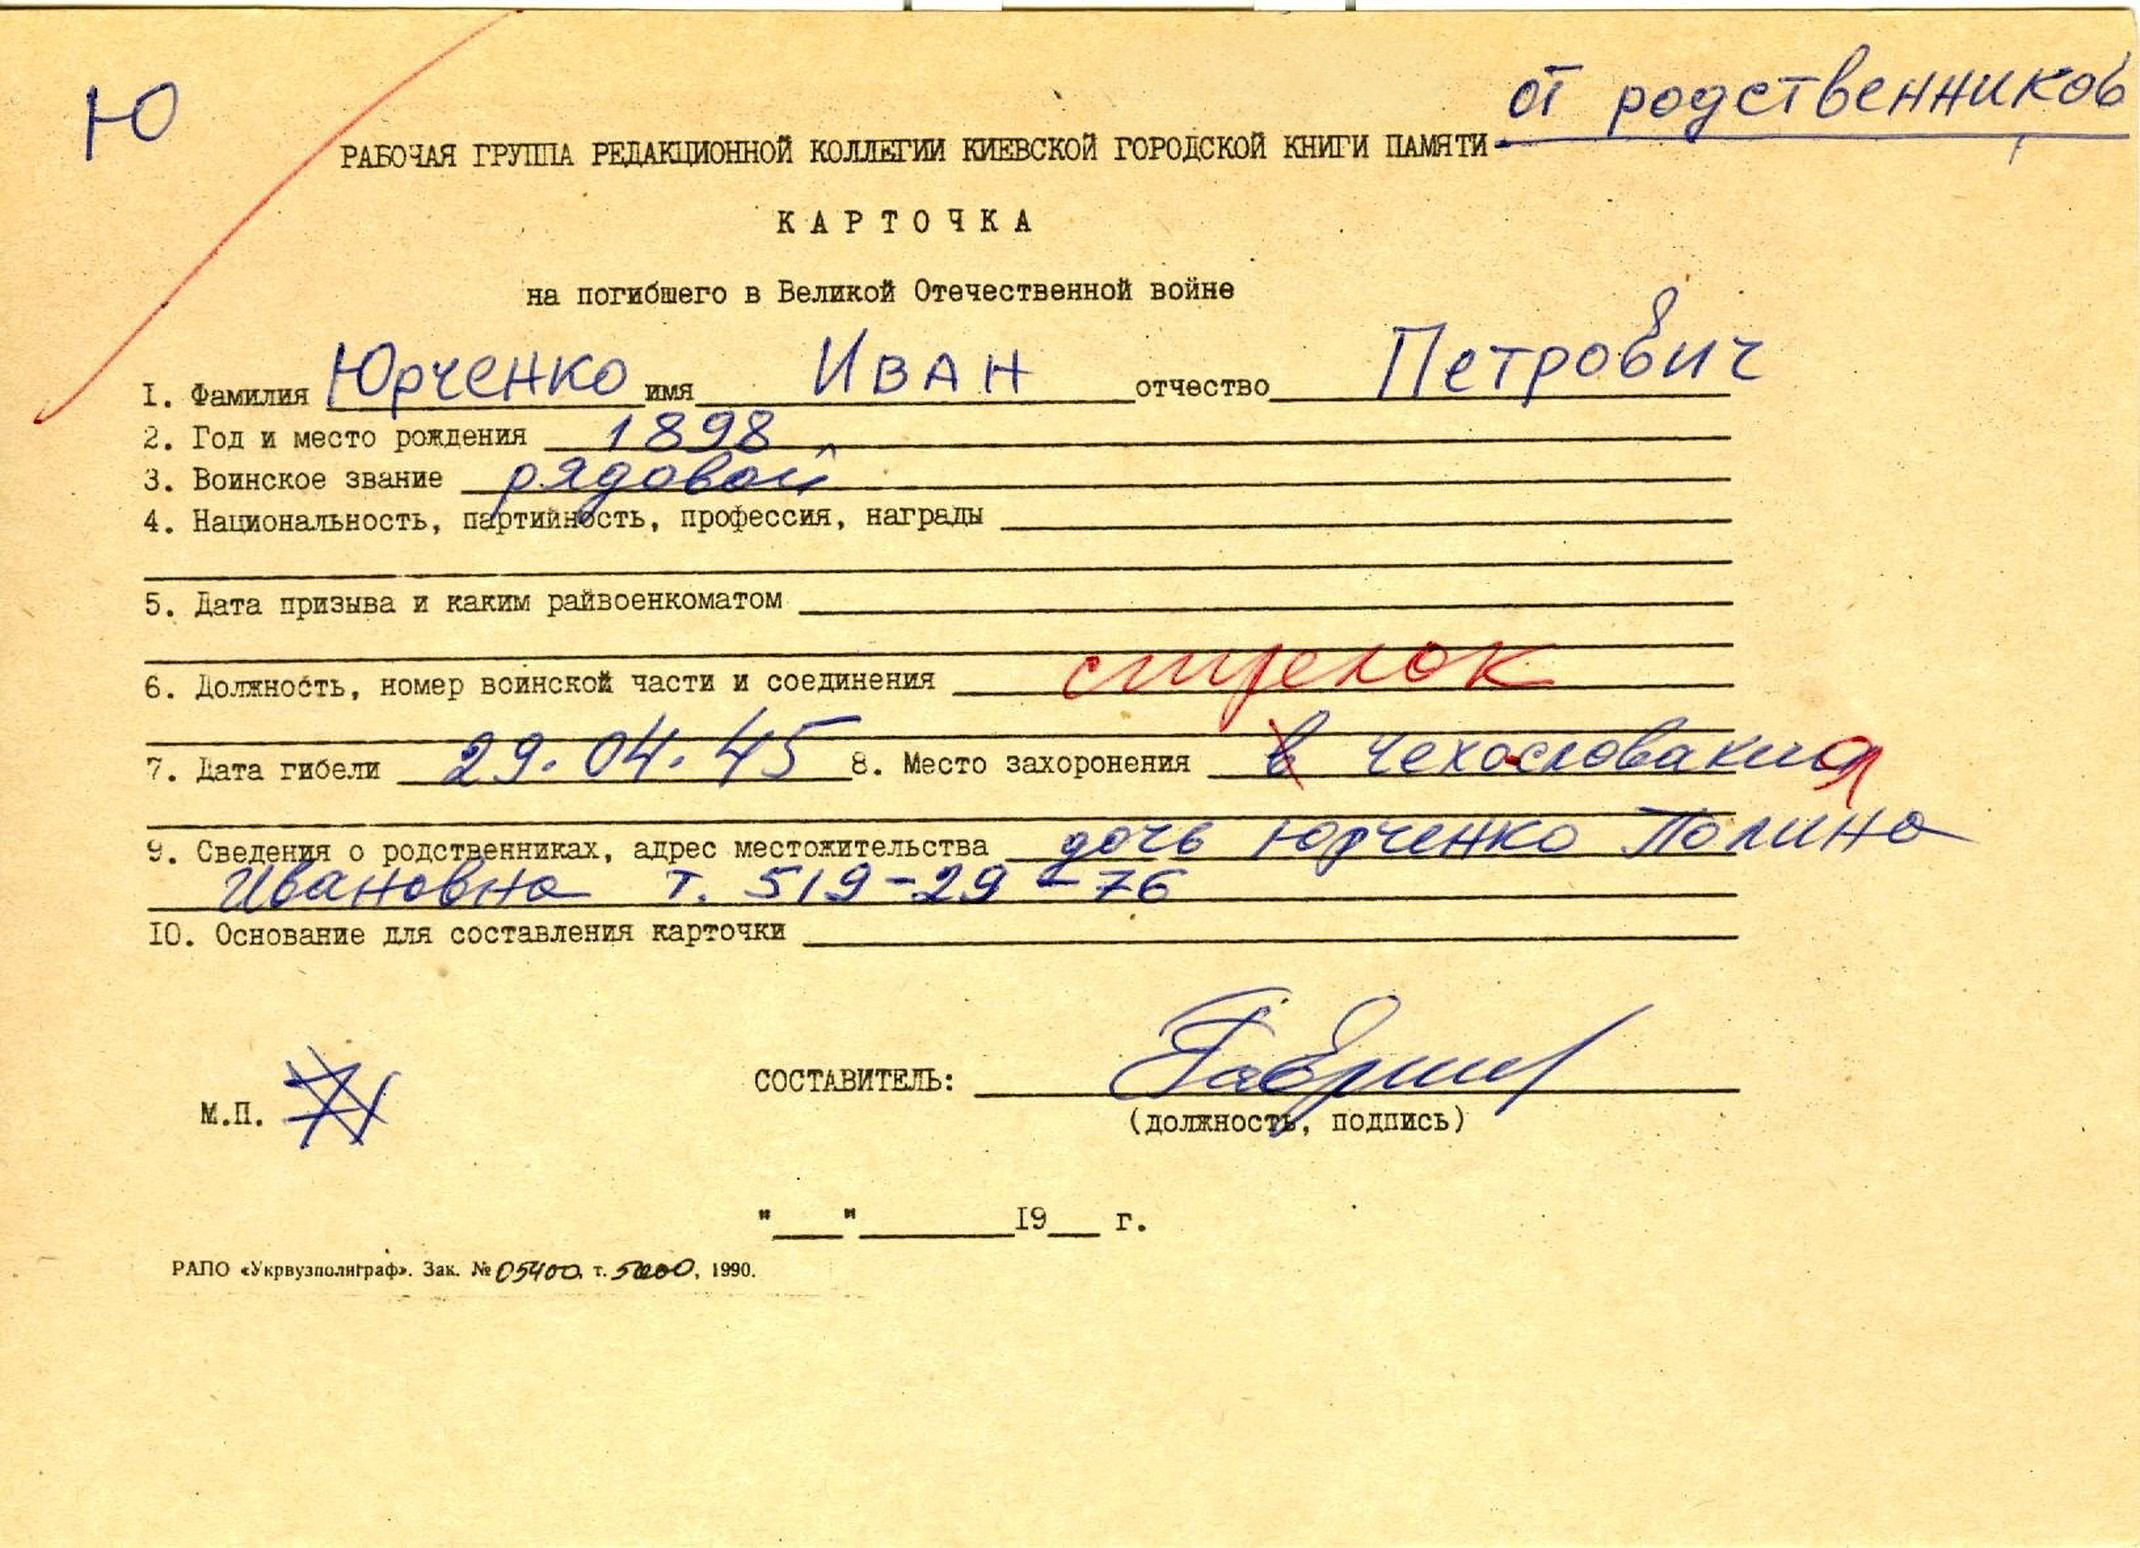 Ю
от родственников
РАБОЧАЯ ГРУППА РЕДАКЦИОННОЙ КОЛЛЕГИИ КИЕВСКОЙ ГОРОДСКОЙ КНИГИ ПАМЯТИ
КАРТОЧКА
на погибшего в Великой Отечественной войне
I. Фамилия Юрченко имя Иван отчество Петрович
2. Год и место рождения 1898
3. Воинское звание рядовой
4. Национальность, партийность, профессия, награды
5. Дата призыва и каким райвоенкоматом
6. Должность, номер воинской части и соединения стрелок
7. Дата гибели 29.04.45 8. Место захоронения в Чехословакия
9. Сведения о родственниках, адрес местожительства дочь Юрченко Полина
Ивановна т. 519-29-76
IO. Основание для составления карточки
СОСТАВИТЕЛЬ:
М.П.
(должность, подпись)
"___"________I9___ г.
РАПО «Укрвузполиграф». Зак. № 05400. т. 5000, 1990.